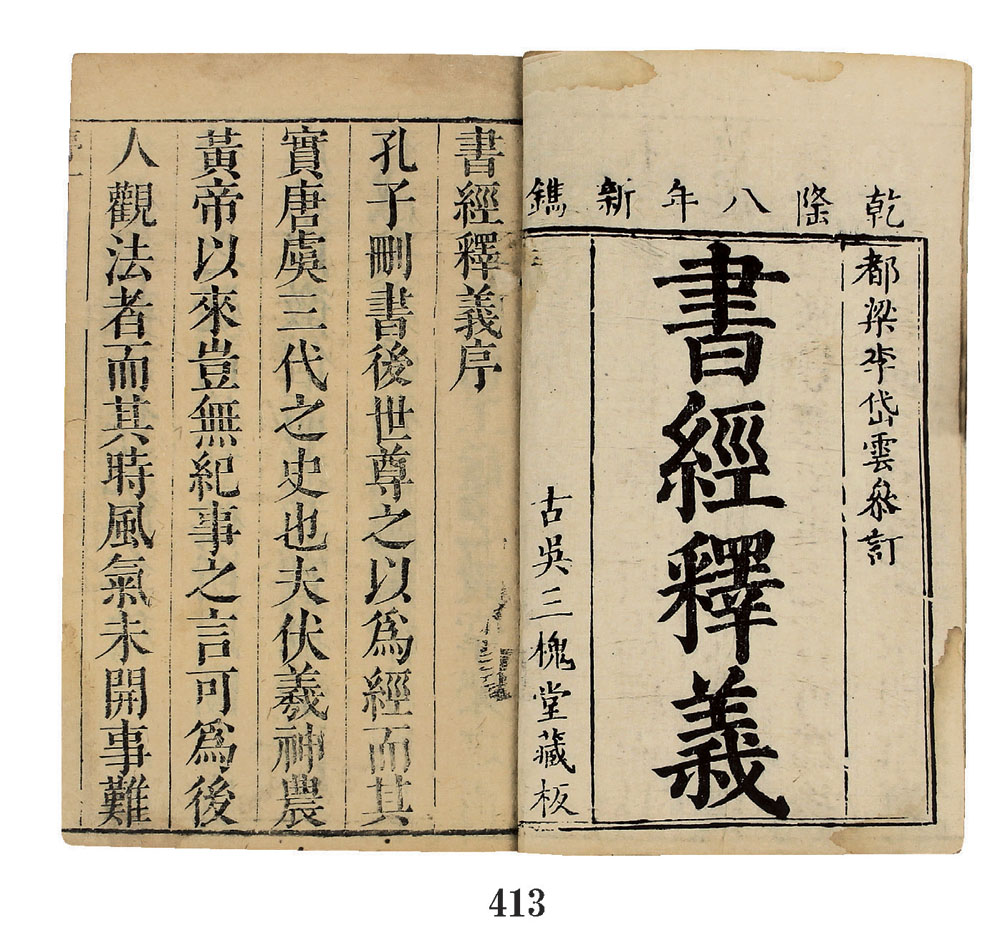 乾隆八年新鐫
都梁李岱雲叅訂
書經釋義
古吳三槐堂藏板
書經釋義序
孔子刪書後世尊之以爲經而其
實唐虞三代之史也夫伏羲神農
黃帝以來豈無紀事之言可爲後
人觀法者而其時風氣未開事難
413